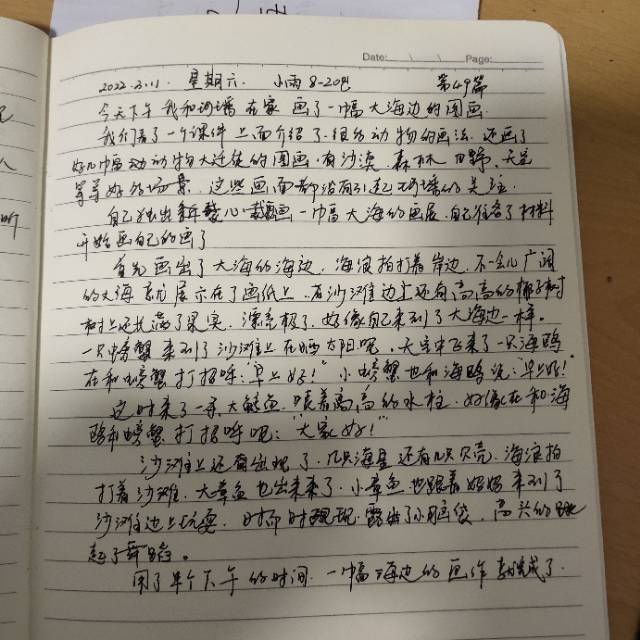 Date: Page:
2022.3.11. 星期六. 小雨 8-20℃ 第49篇
今天下午 我和诗璠 在家 画了一幅 大海边的图画.
我们看了一个课件 上面介绍了很多动物的画法. 还画了
好几幅动物大迁徙的图画. 有沙漠. 森林 田野. 天空
等等好的场景. 这些画面都没有引起诗璠的关注.
自己 一幅大海的画展. 自己准备了材料
开始画自己的画了
首先画出了大海的海边, 海浪拍打着岸边. 不一会儿广阔
的大海就展示在了画纸上. 在沙滩边上还有高高的椰子树
树上还长满了果实. 漂亮极了. 好像自己来到了大海边一样.
一只螃蟹来到了沙滩上在晒太阳呢. 天空中飞来了一只海鸥
在和螃蟹打招呼:"早上好!" 小螃蟹也和海鸥说:"早上好!"
这时来了一条大鲸鱼. 喷着高高的水柱. 好像在和海
鸥和螃蟹打招呼呢:"大家好!"
沙滩上还有出现了几只海星还有几只贝壳. 海浪拍
打着沙滩. 大章鱼也出来了. 小章鱼也跟着妈妈来到了
沙滩边上玩耍. 时 时 露出了小脑袋. 高兴的跳
起了舞蹈.
用了整个下午的时间. 一幅海边的画作就完成了.